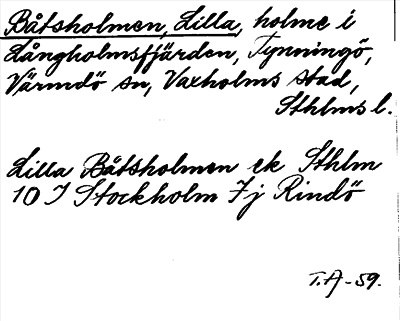 Båtsholmen, Lilla, holme i
Långholmsfjärden, Tynningö,
Värmdö sn, Vaxholms stad,
Sthlms l.
Lilla Båtsholmen ek Sthlm
10 I Stockholm 7j Rindö
T.A-59.